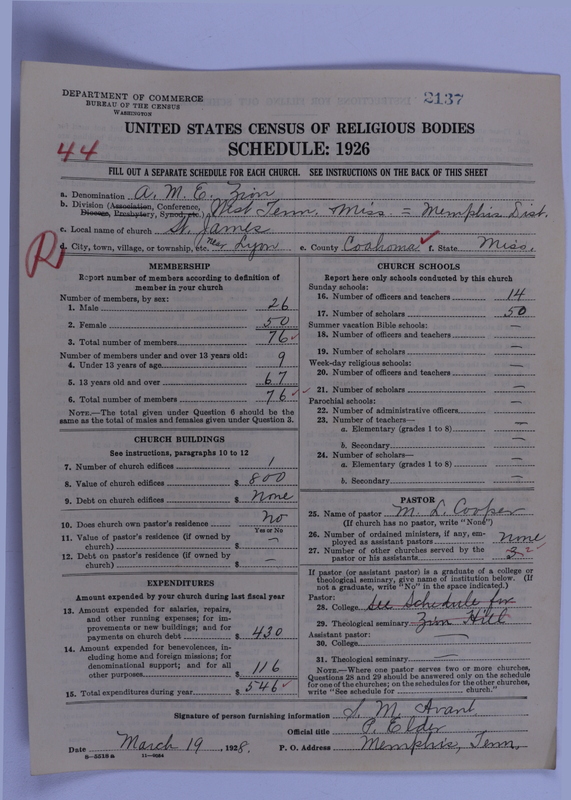 DEPARTMENT OF COMMERCE
BUREAU OF THE CENSUS
WASHINGTON
2137
UNITED STATES CENSUS OF RELIGIOUS BODIES
SCHEDULE: 1926
44
FILL OUT A SEPARATE SCHEDULE FOR EACH CHURCH. SEE INSTRUCTIONS ON THE BACK OF THIS SHEET
a. Denomination A. M. E. Zion
b. Division (Association, Conference, Diocese, Presbytery, Synod, etc.) West Tenn. Miss. = Memphis Dist.
c. Local name of church St. James
R
d. City, town, village, or township, etc. Near Lyon e. County Coahoma ✓ f. State Miss.
MEMBERSHIP
Report number of members according to definition of
member in your church
Number of members, by sex:
1. Male 26
2. Female 50
3. Total number of members 76 ✓
Number of members under and over 13 years old:
4. Under 13 years of age 9
5. 13 years old and over 67
6. Total number of members 76 ✓ ✓
NOTE.—The total given under Question 6 should be the
same as the total of males and females given under Question 3.
CHURCH BUILDINGS
See instructions, paragraphs 10 to 12
7. Number of church edifices 1
8. Value of church edifices $ 800
9. Debt on church edifices $ None
10. Does church own pastor's residence No
Yes or No
11. Value of pastor's residence (if owned by
church) $ —
12. Debt on pastor's residence (if owned by
church) $ —
EXPENDITURES
Amount expended by your church during last fiscal year
13. Amount expended for salaries, repairs,
and other running expenses; for im-
provements or new buildings; and for
payments on church debt $ 430
14. Amount expended for benevolences, in-
cluding home and foreign missions; for
denominational support; and for all
other purposes $ 116
15. Total expenditures during year $ 546 ✓
CHURCH SCHOOLS
Report here only schools conducted by this church
Sunday schools:
16. Number of officers and teachers 14
17. Number of scholars 50
Summer vacation Bible schools:
18. Number of officers and teachers —
19. Number of scholars —
Week-day religious schools:
20. Number of officers and teachers —
21. Number of scholars —
Parochial schools:
22. Number of administrative officers —
23. Number of teachers—
a. Elementary (grades 1 to 8) —
b. Secondary —
24. Number of scholars—
a. Elementary (grades 1 to 8) —
b. Secondary —
PASTOR
25. Name of pastor M. L. Cooper
(If church has no pastor, write "None")
26. Number of ordained ministers, if any, em-
ployed as assistant pastors None
27. Number of other churches served by the
pastor or his assistants 3 2
If pastor (or assistant pastor) is a graduate of a college or
theological seminary, give name of institution below. (If
not a graduate, write "No" in the space indicated.)
Pastor:
28. College See Schedule for
29. Theological seminary Zion Hill
Assistant pastor:
30. College —
31. Theological seminary —
NOTE.—Where one pastor serves two or more churches,
Questions 28 and 29 should be answered only on the schedule
for one of the churches; on the schedules for the other churches,
write "See schedule for church."
Signature of person furnishing information S. M. Avant
Official title P. Elder
Date March 19, 1928. P. O. Address Memphis, Tenn.
8-5518a 11-9084